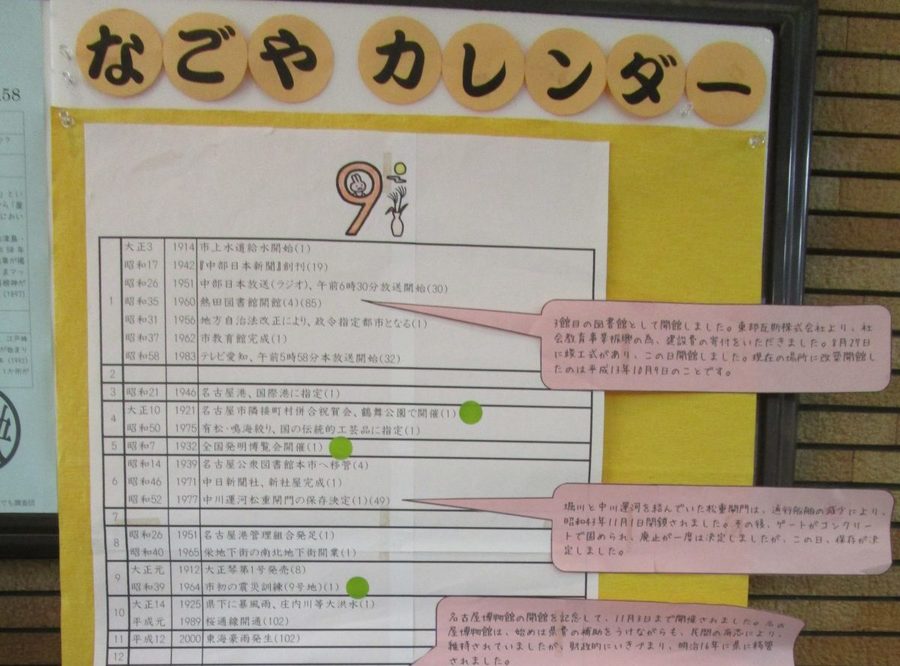 なごや カレンダー
9
1
大正3 1914 市上水道給水開始(1)
昭和17 1942 『中部日本新聞』創刊(19)
昭和26 1951 中部日本放送(ラジオ)、午前6時30分放送開始(30)
昭和35 1960 熱田図書館開館(4)(85)
昭和31 1956 地方自治法改正により、政令指定都市となる(1)
昭和37 1962 市教育館完成(1)
昭和58 1983 テレビ愛知、午前5時58分本放送開始(32)
2
3 昭和21 1946 名古屋港、国際港に指定(1)
4 大正10 1921 名古屋市隣接町村併合祝賀会、鶴舞公園で開催(1)
昭和50 1975 有松・鳴海絞り、国の伝統的工芸品に指定(1)
5 昭和7 1932 全国発明博覧会開催(1)
6
昭和14 1939 名古屋公衆図書館本市へ移管(4)
昭和46 1971 中日新聞社、新社屋完成(1)
昭和52 1977 中川運河松重閘門の保存決定(1)(49)
7
8 昭和26 1951 名古屋港管理組合発足(1)
昭和40 1965 栄地下街の南北地下街開業(1)
9 大正元 1912 大正琴第1号発売(8)
昭和39 1964 市初の震災訓練(9号地)(1)
10 大正14 1925 県下に暴風雨、庄内川等大洪水(1)
平成元 1989 桜通線開通(102)
11 平成12 2000 東海豪雨発生(102)
12
3館目の図書館として開館しました。東邦瓦斯株式会社より、社
会教育事業振興の為、建設費の寄付をいただきました。8月29日
に竣工式があり、この日開館しました。現在の場所に改築開館し
たのは平成13年10月9日のことです。
堀川と中川運河を結んでいた松重閘門は、通行船舶の減少により、
昭和43年11月1日閉鎖されました。その後、ゲートがコンクリー
トで固められ、廃止が一度は決定しましたが、この日、保存が決
定しました。
名古屋博物館の開館を記念して、11月3日まで開催されました。名古
屋博物館は、始めは県費の補助をうけながらも、民間の有志により、
維持されていましたが、財政的にいきづまり、明治16年に県に移管
されました。